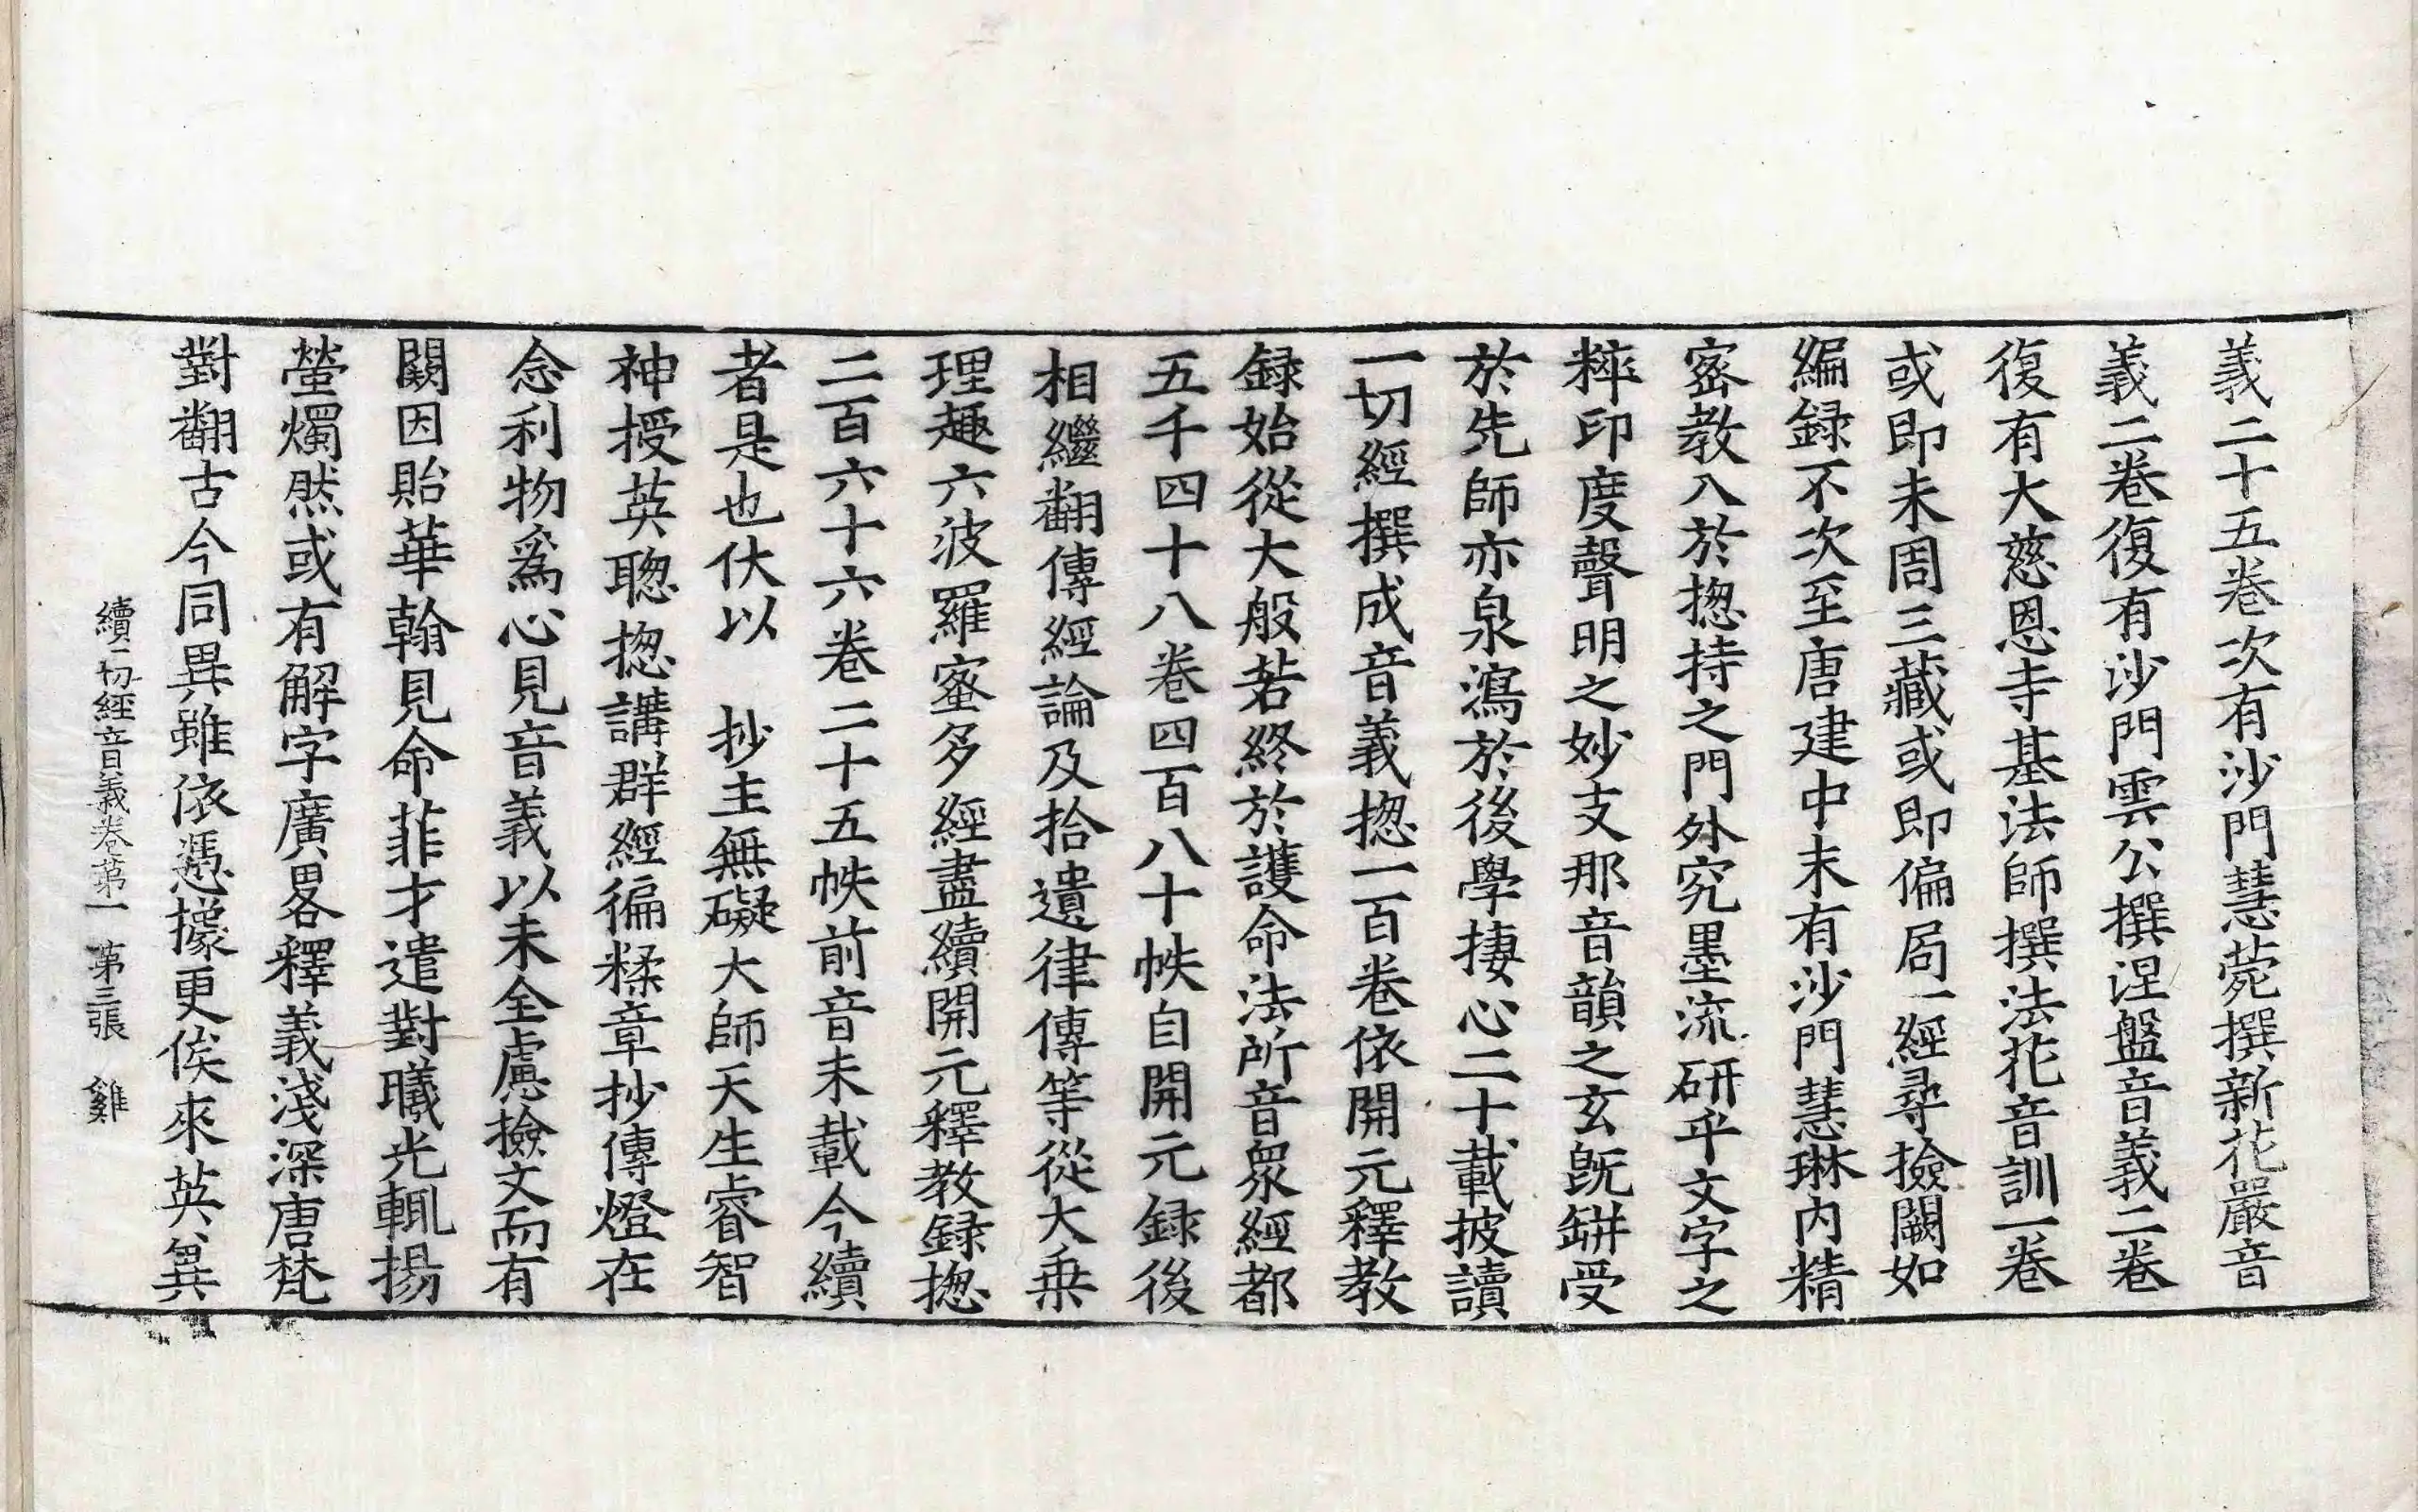 義二十五卷次有沙門慧菀撰新花嚴音
義二卷復有沙門雲公撰涅盤音義二卷
復有大慈恩寺基法師撰法花音訓一卷
或即未周三藏或即偏局一經尋撿闕如
編録不次至唐建中末有沙門慧琳内精
密教入於揔持之門外究墨流研乎文字之
粹印度聲明之妙支那音韻之玄既缾受
於先師亦泉瀉於後學捿心二十載披讀
一切經撰成音義揔一百卷依開元釋教
録始從大般若終於護命法所音衆經都
五千四十八卷四百八十帙自開元録後
相繼翻傳經論及拾遺律傳等從大乗
理趣六波羅蜜多經盡續開元釋教録揔
二百六十六卷二十五帙前音未載今續
者是也伏以　抄主無礙大師天生睿智
神授英聦揔講群經徧糅章抄傳燈在
念利物爲心見音義以未全慮撿文而有
闕因貽華翰見命菲才遣對曦光輒揚
螢燭然或有解字廣畧釋義淺深唐梵
對翻古今同異雖依憑據更俟來英兾
續一切經音義卷第一　第三張　雞